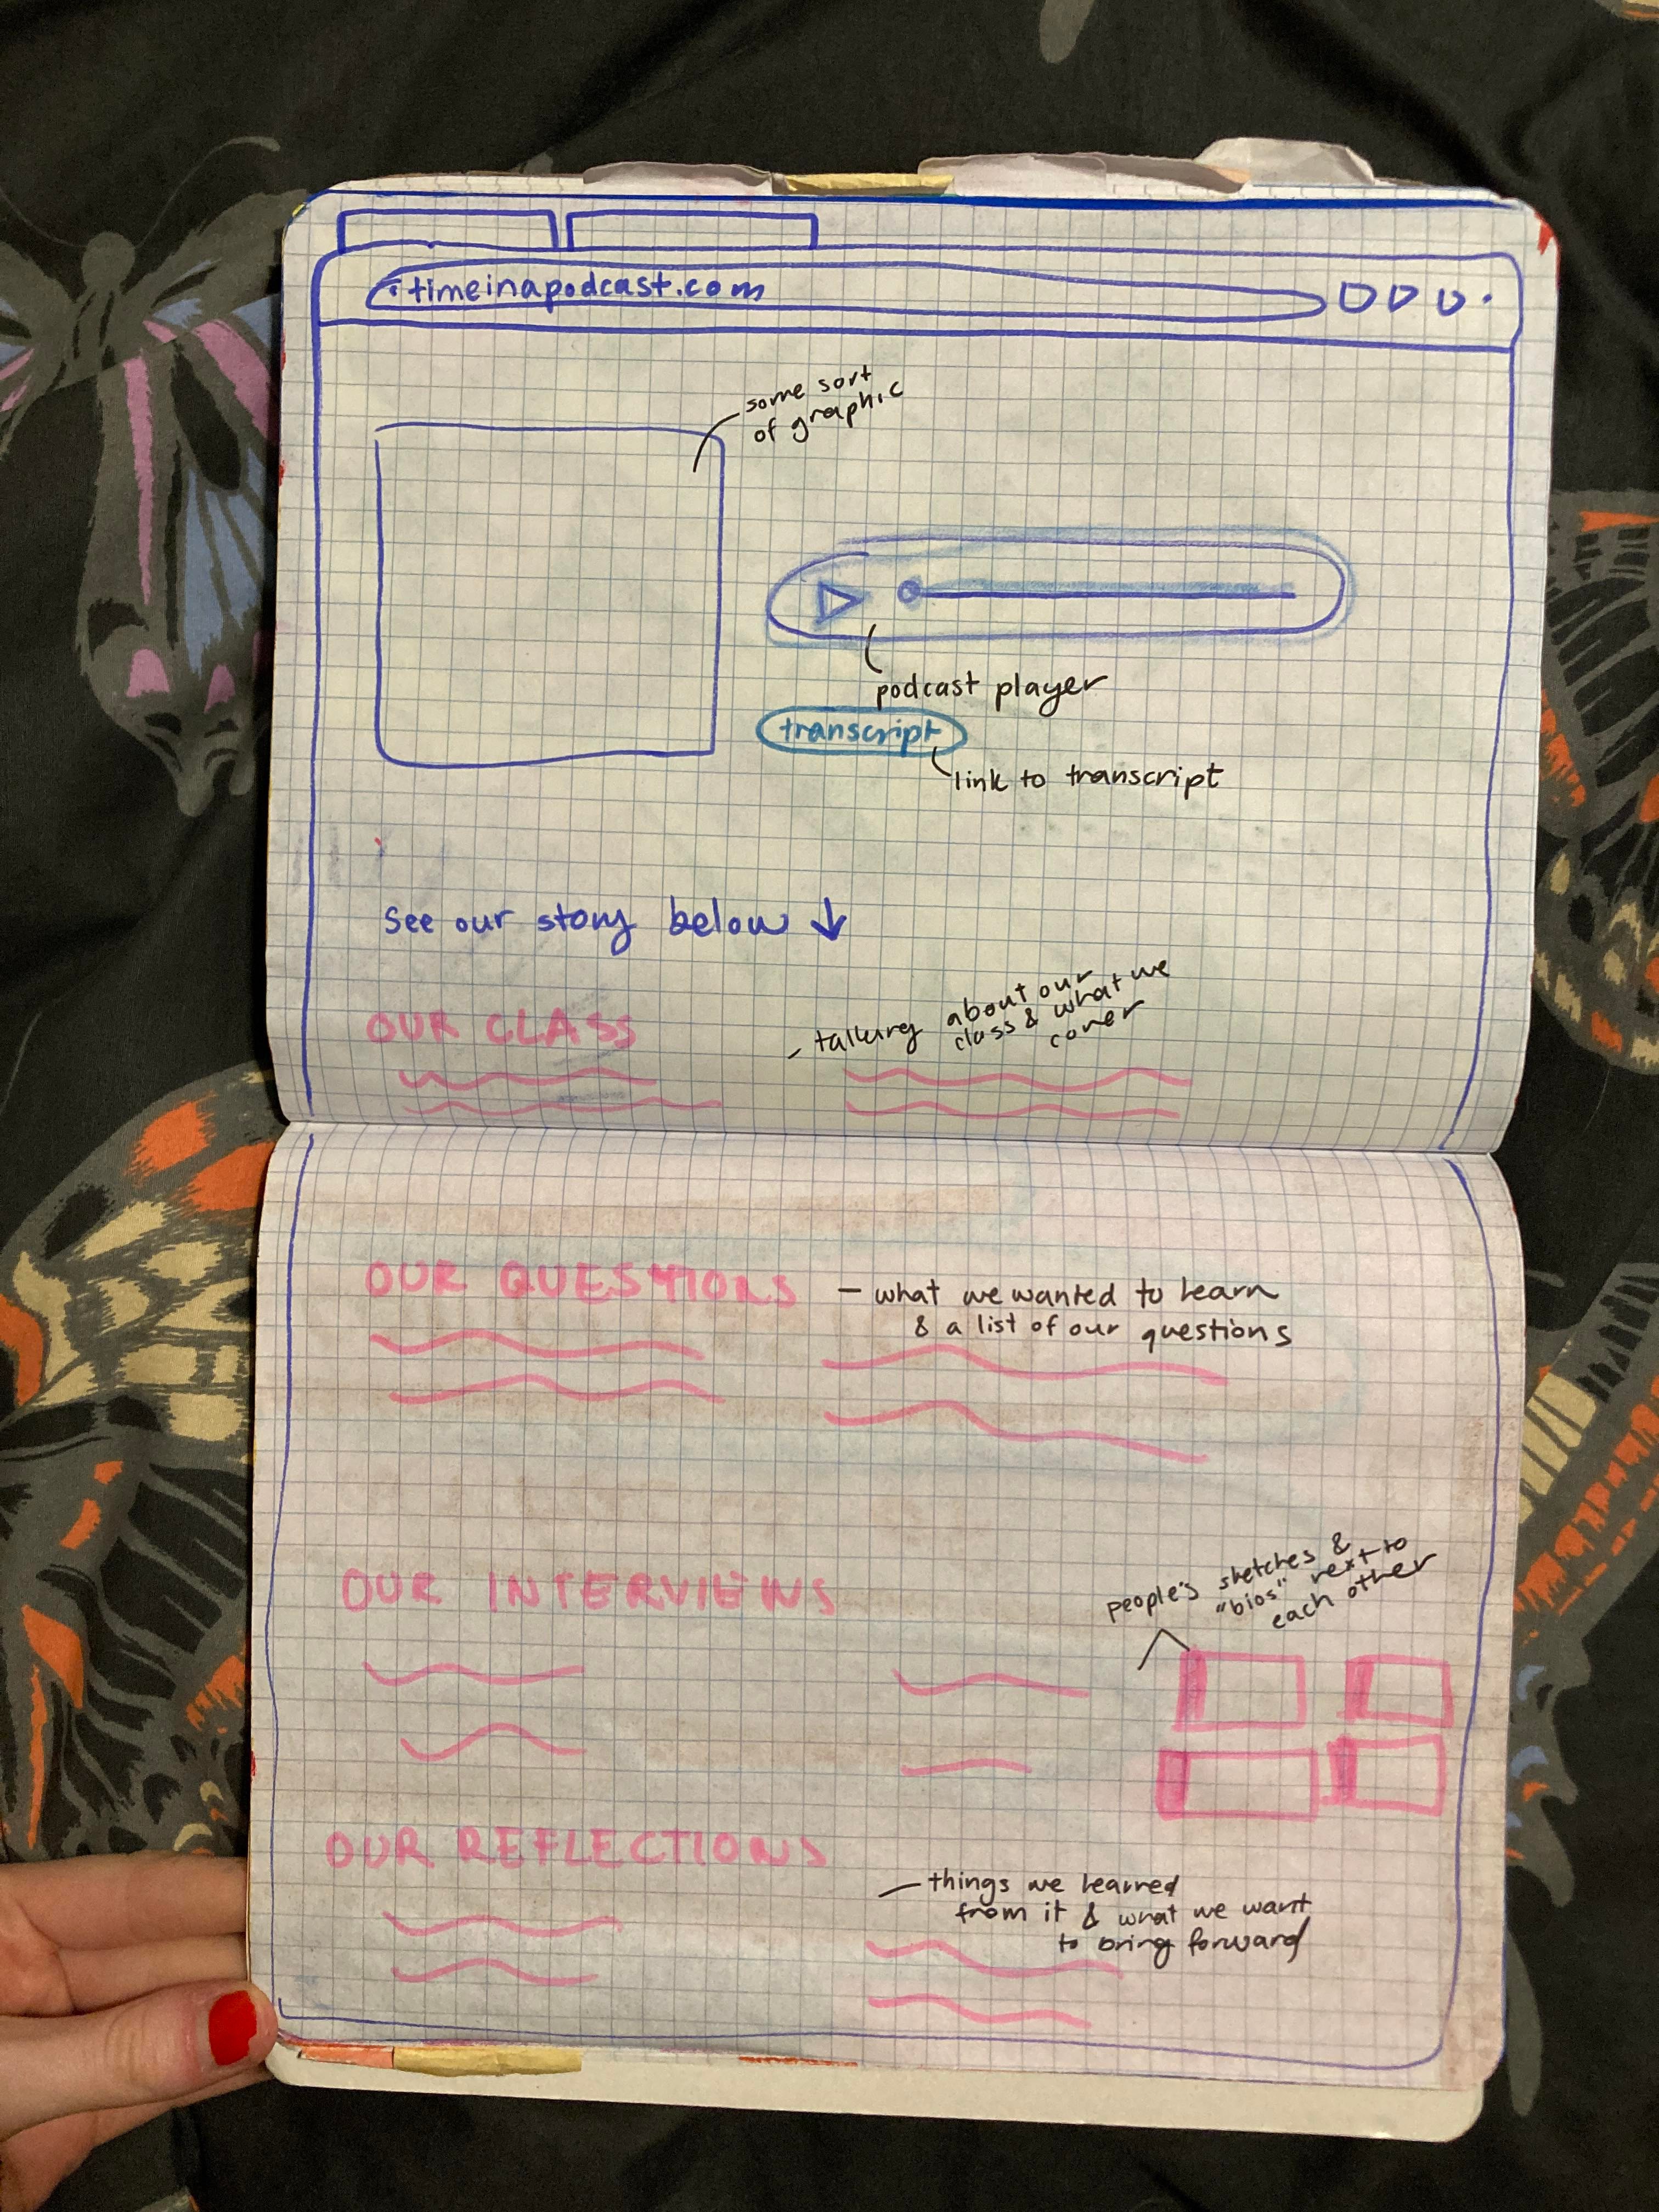 timeinapodcast.com
some sort
of graphic
podcast player
transcript
link to transcript
See our story below ↓
OUR CLASS
- talking about our
class & what we
cover
OUR QUESTIONS
- what we wanted to learn
& a list of our questions
OUR INTERVIEWS
people's sketches &
"bios" next to
each other
OUR REFLECTIONS
- things we learned
from it & what we want
to bring forward